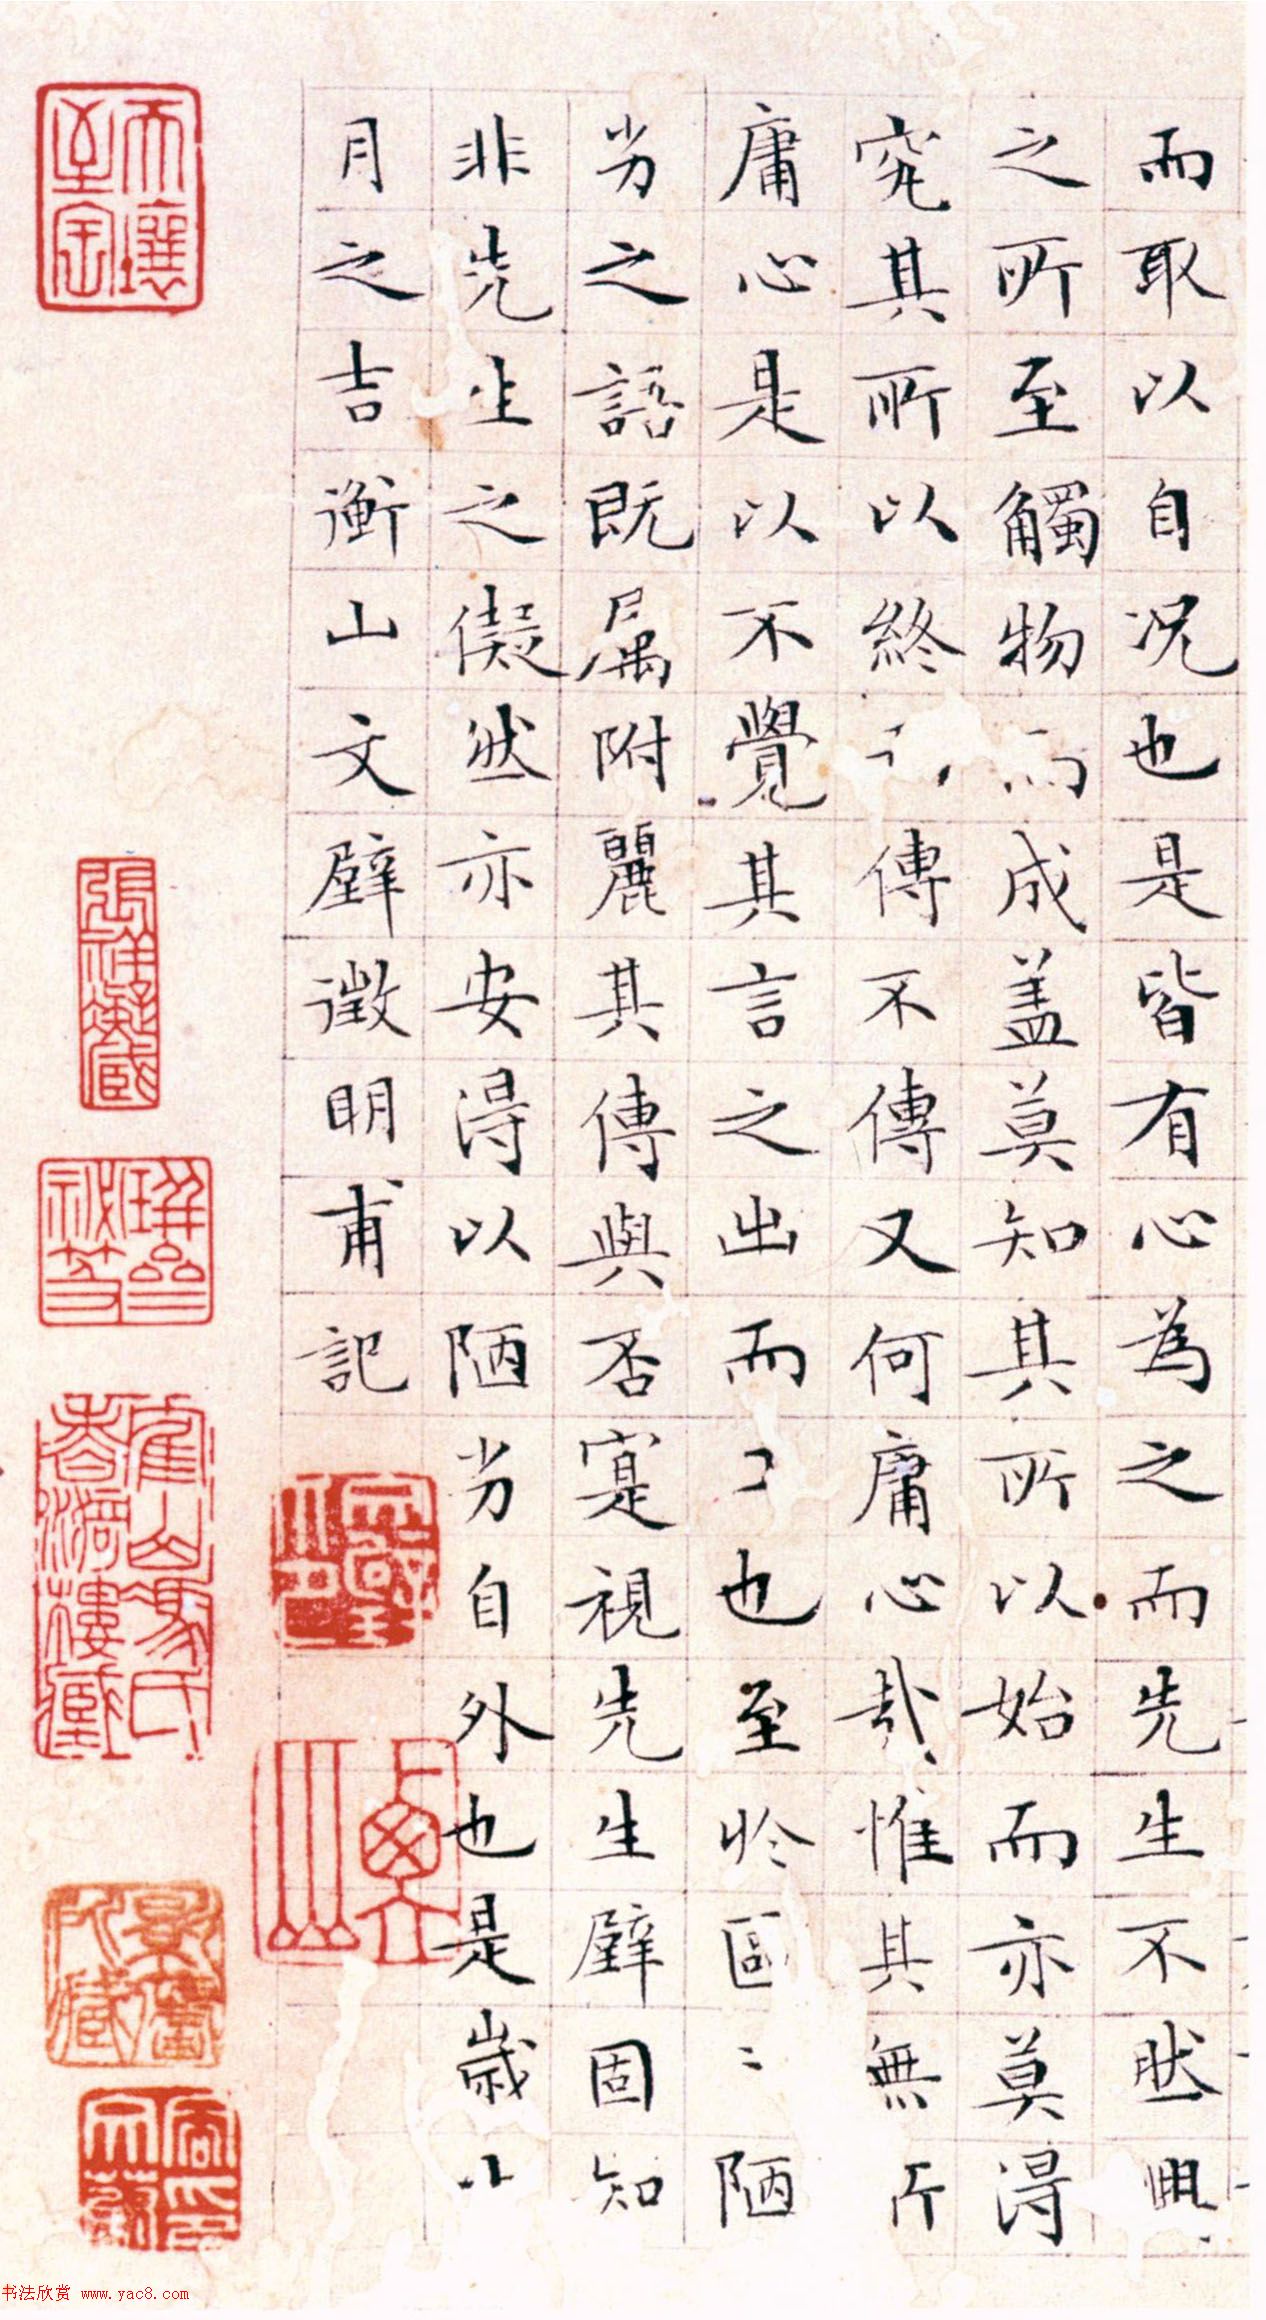 而取以自况也是皆有心為之而先生不然興
之所至觸物而成盖莫知其所以始而亦莫得
究其所以終傳不傳又何庸心哉惟其無所
庸心是以不覺其言之出而工也至於區〻陋
劣之語既属附麗其傳與否寔視先生璧固知
非先生之儗然亦安得以陋劣自外也是歲十
月之吉衡山文璧徵明甫記
天壤至寶
衡山
书法欣赏 www.yac8.com